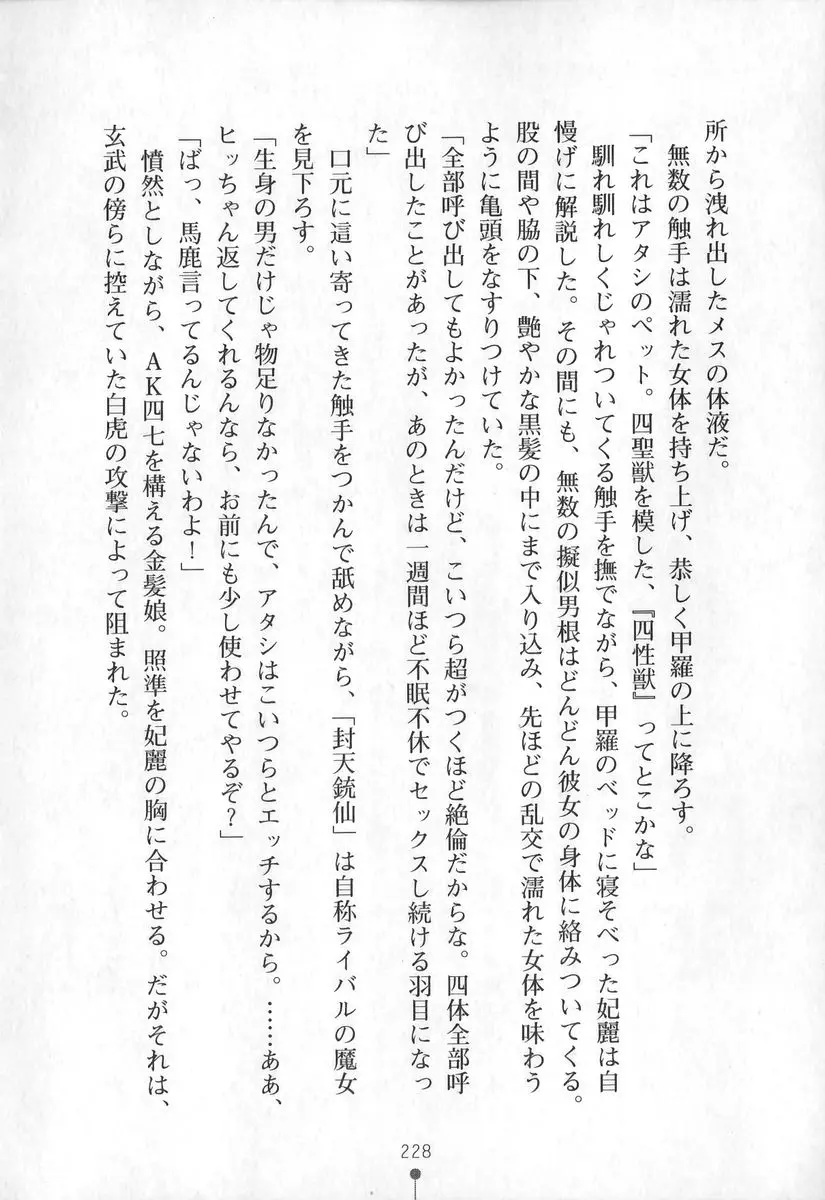 所から洩れ出したメスの体液だ。
　無数の触手は濡れた女体を持ち上げ、恭しく甲羅の上に降ろす。
「これはアタシのペット。四聖獣を模した、『四性獣』ってとこかな」
　馴れ馴れしくじゃれついてくる触手を撫でながら、甲羅のベッドに寝そべった妃麗は自
慢げに解説した。その間にも、無数の擬似男根はどんどん彼女の身体に絡みついてくる。
股の間や脇の下、艶やかな黒髪の中にまで入り込み、先ほどの乱交で濡れた女体を味わう
ように亀頭をなすりつけていた。
「全部呼び出してもよかったんだけど、こいつら超がつくほど絶倫だからな。四体全部呼
び出したことがあったが、あのときは一週間ほど不眠不休でセックスし続ける羽目になっ
た」
　口元に這い寄ってきた触手をつかんで舐めながら、「封天銃仙」は自称ライバルの魔女
を見下ろす。
「生身の男だけじゃ物足りなかったんで、アタシはこいつらとエッチするから。……ああ、
ヒッちゃん返してくれるんなら、お前にも少し使わせてやるぞ？」
「ばっ、馬鹿言ってるんじゃないわよ！」
　憤然としながら、ＡＫ四七を構える金髪娘。照準を妃麗の胸に合わせる。だがそれは、
玄武の傍らに控えていた白虎の攻撃によって阻まれた。
228